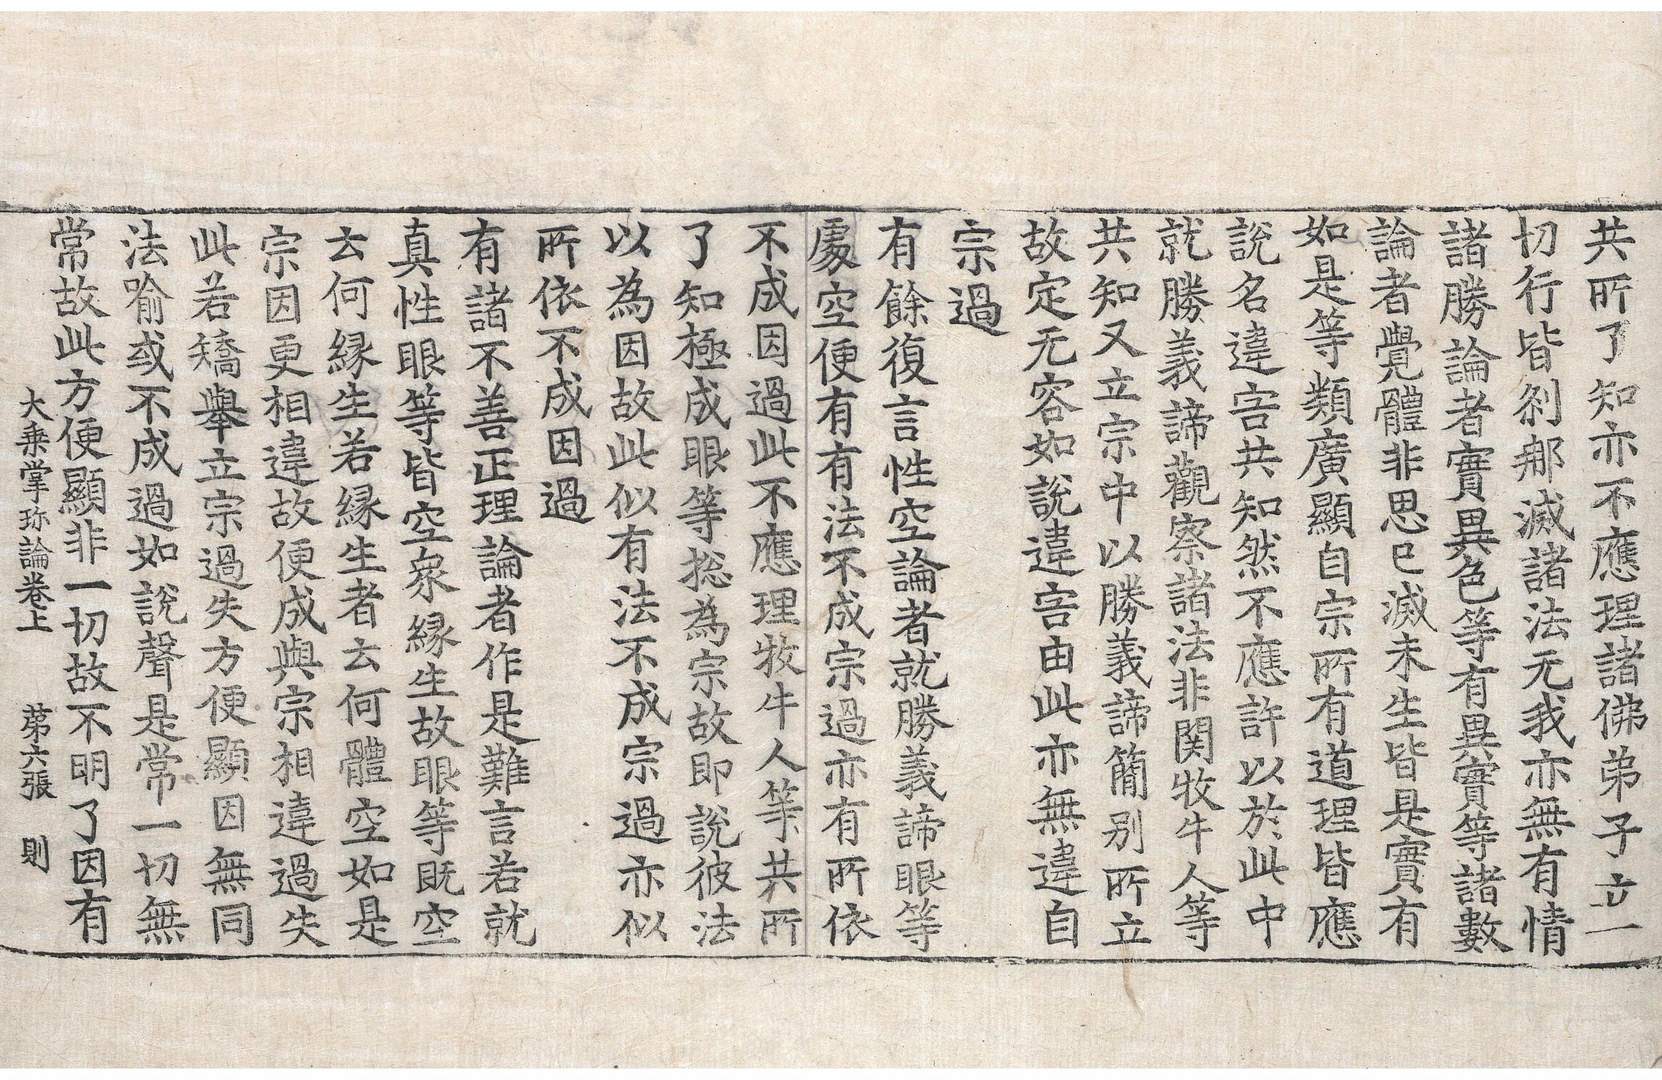 共所了知亦不應理諸佛弟子立一
切行皆剎那滅諸法无我亦無有情
諸勝論者實異色等有異實等諸數
論者覺體非思已滅未生皆是實有
如是等類廣顯自宗所有道理皆應
說名違害共知然不應許以於此中
就勝義諦觀察諸法非関牧牛人等
共知又立宗中以勝義諦簡别所立
故定无容如說違害由此亦無違自
宗過
有餘復言性空論者就勝義諦眼等
處空便有有法不成宗過亦有所依
不成因過此不應理牧牛人等共所
了知極成眼等捴為宗故即說彼法
以為因故此似有法不成宗過亦似
所依不成因過
有諸不善正理論者作是難言若就
真性眼等皆空衆縁生故眼等既空
云何縁生若縁生者云何體空如是
宗因更相違故便成與宗相違過失
此若矯舉立宗過失方便顯因無同
法喻或不成過如說聲是常一切無
常故此方便顯非一切故不明了因有
大乘掌珎論卷上 第六張 則